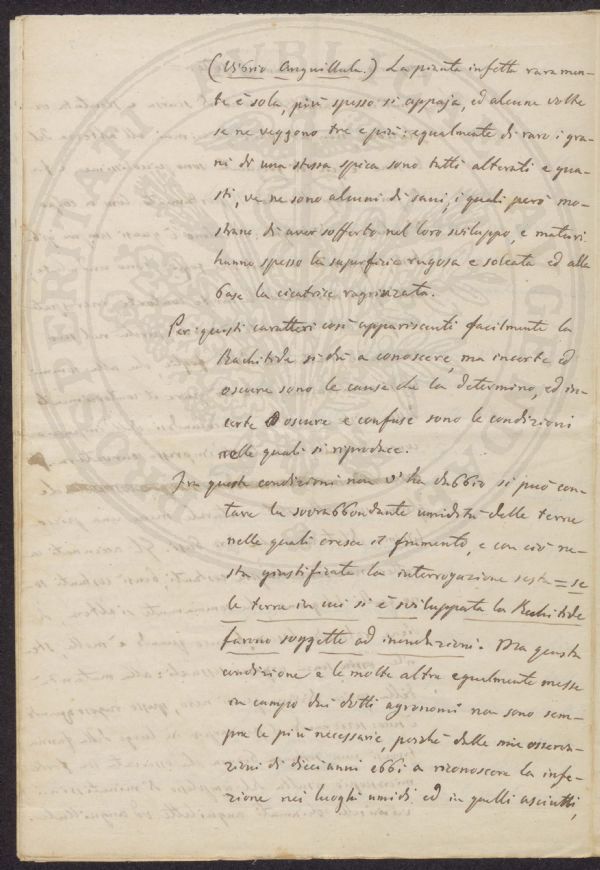 (Vibrio Anguillula.) La pianta infetta raramen-
te è sola, più spesso si appaja, ed alcune volte
se ne veggono tre e più: egualmente di raro i gra-
ni di una stessa spica sono tutti alterati e gua-
sti, ve ne sono alcuni di sani, i quali però mo-
strano di aver sofferto nel loro sviluppo, e maturi
hanno spesso la superficie rugosa e solcata ed alla
base la cicatrice ragrinzata.
Per questi caratteri così appariscenti facilmente la
Rachitide si dà a conoscere, ma incerte ed
oscure sono le cause che la determino, ed in-
certe oscure e confuse sono le condizioni
nelle quali si riproduce.
Fra queste condizioni non v'ha dubbio si può con-
tare la sovrabbondante umidità delle terre
nelle quali cresce il frumento, e con ciò re-
sta giustificata la interrogazione sesta = se
le terre in cui si è sviluppata la Rachitide
furono soggette ad inondazioni. Ma questa
condizione e le molte altre egualmente messe
in campo dai dotti agronomi non sono sem-
pre le più necessarie, perchè dalle mie osserva-
zioni di dieci anni ebbi a riconoscere la infe-
zione nei luoghi umidi ed in quelli asciutti,